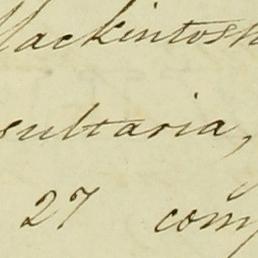 Mackintosh
sultaria,
27 com